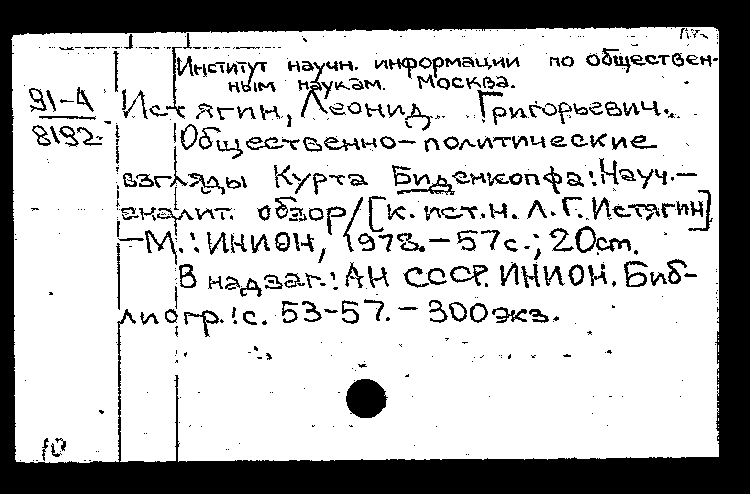 Институт научн. информации по обществен-
ным наукам. Москва.
91-4
8192
Истягин, Леонид Григорьевич.
Общественно-политические
взгляды Курта Биденкопфа: Науч.-
аналит. обзор/[к. ист. н. Л. Г. Истягин]
—М.: ИНИОН, 1978.—57с.; 20см.
В надзаг.: АН СССР. ИНИОН. Биб-
лиогр.: с. 53-57. — 300экз.
10